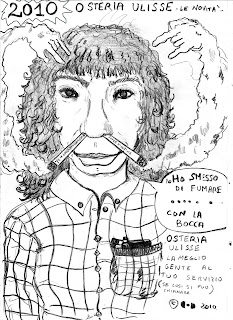 2010 OSTERIA ULISSE - LE NOVITA'.
HO SMESSO
DI FUMARE
......
CON LA
BOCCA
OSTERIA
ULISSE
LA MEGLIO
GENTE AL
TUO SERVIZIO
(SE COSI SI PUO'
CHIAMARE
© 2010